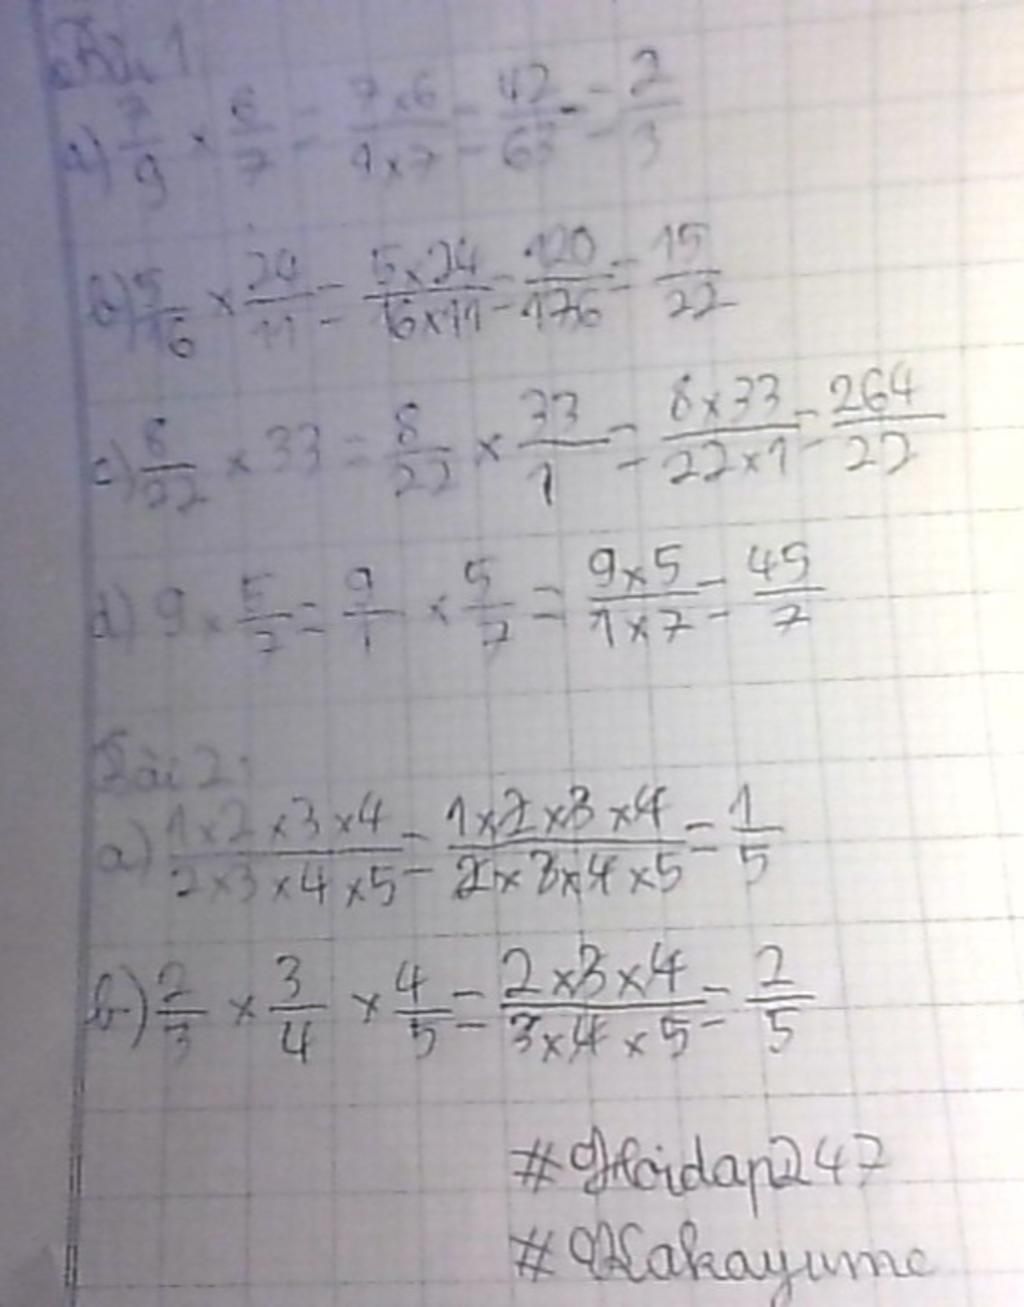 Bài 1
a) 7/9 × 6/7 = 7×6/9×7 = 42/63 = 2/3
b) 5/16 × 24/11 = 5×24/16×11 = 120/176 = 15/22
c) 8/22 × 33 = 8/22 × 33/1 = 8×33/22×1 = 264/22
d) 9 × 5/7 = 9/1 × 5/7 = 9×5/1×7 = 45/7
Bài 2:
a) 1×2×3×4/2×3×4×5 = 1×2×3×4/2×3×4×5 = 1/5
b) 2/3 × 3/4 × 4/5 = 2×3×4/3×4×5 = 2/5
#Hoidap247
#Nakayume